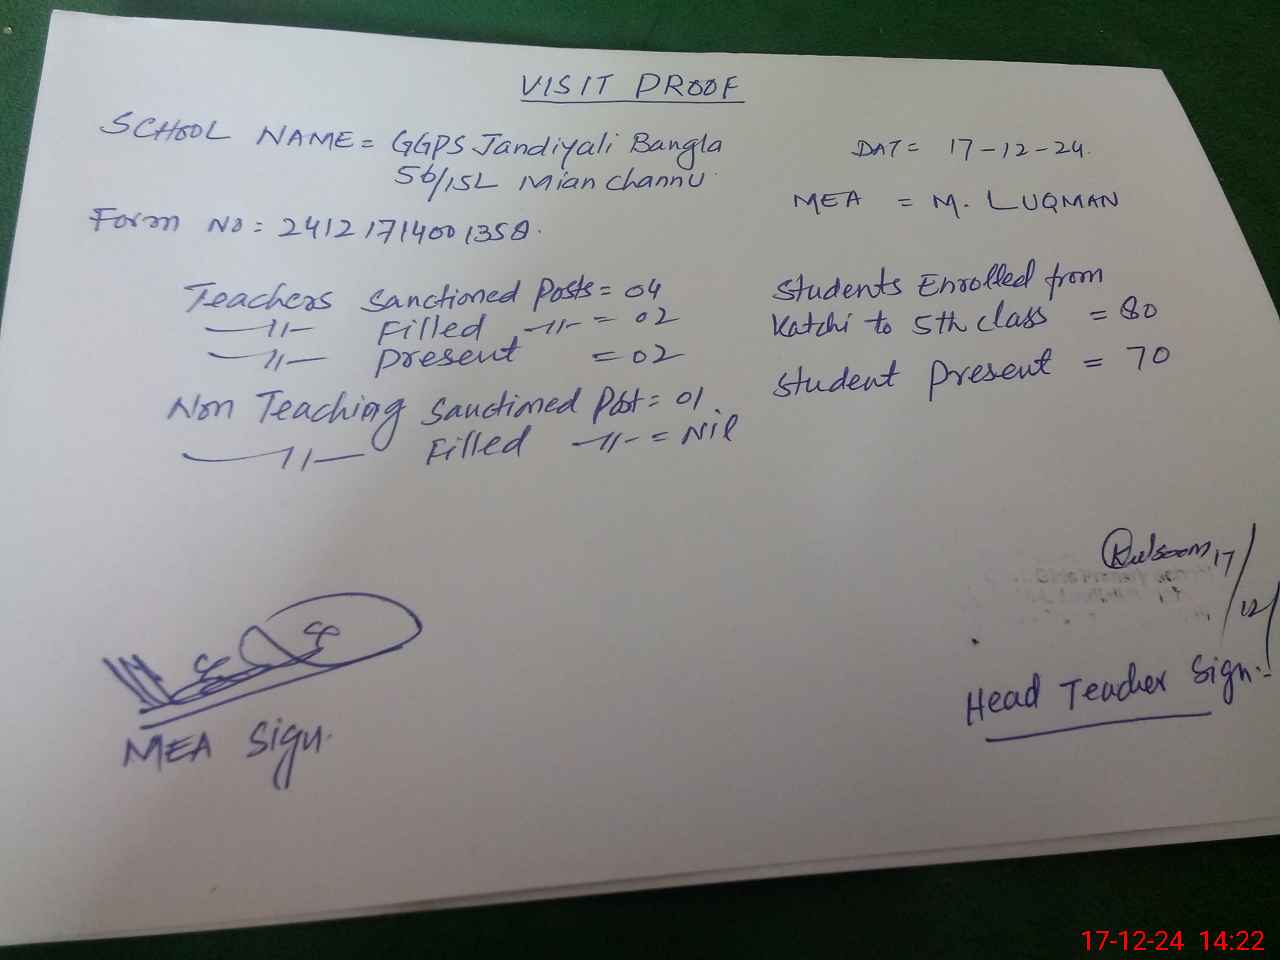 VISIT PROOF
SCHOOL NAME = GGPS Jandiyali Bangla
56/15L Mian Channu.
DAT = 17-12-24.
MEA = M. LUQMAN
Form No: 24121714001358.
Teachers Sanctioned Posts = 04
—〃— Filled —〃— = 02
—〃— Present = 02
Non Teaching Sanctioned Post = 01.
—〃— Filled —〃— = Nil
Students Enrolled from
Katchi to 5th class = 80
Student Present = 70
Kulsoom 17/12/
MEA Sign.
Head Teacher Sign:-
17-12-24 14:22